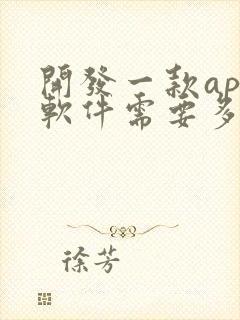 開發一款ap
軟件需要多
徐芳